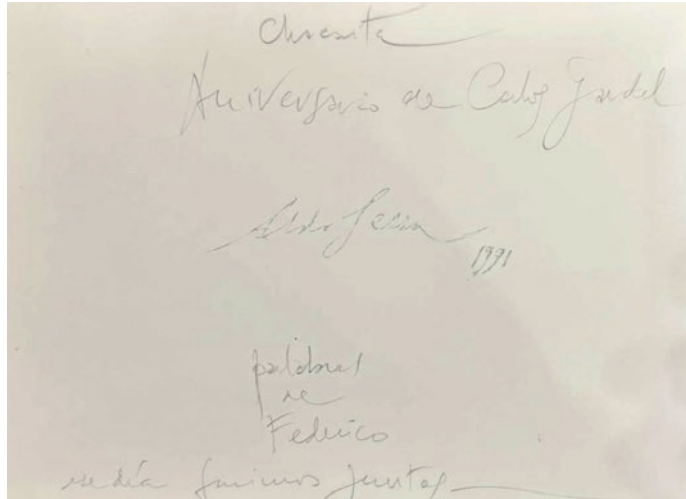 Chacarita
Aniversario de Carlos Gardel
Aldo Sessa
1991
palabras
de
Federico
ese día fuimos juntos